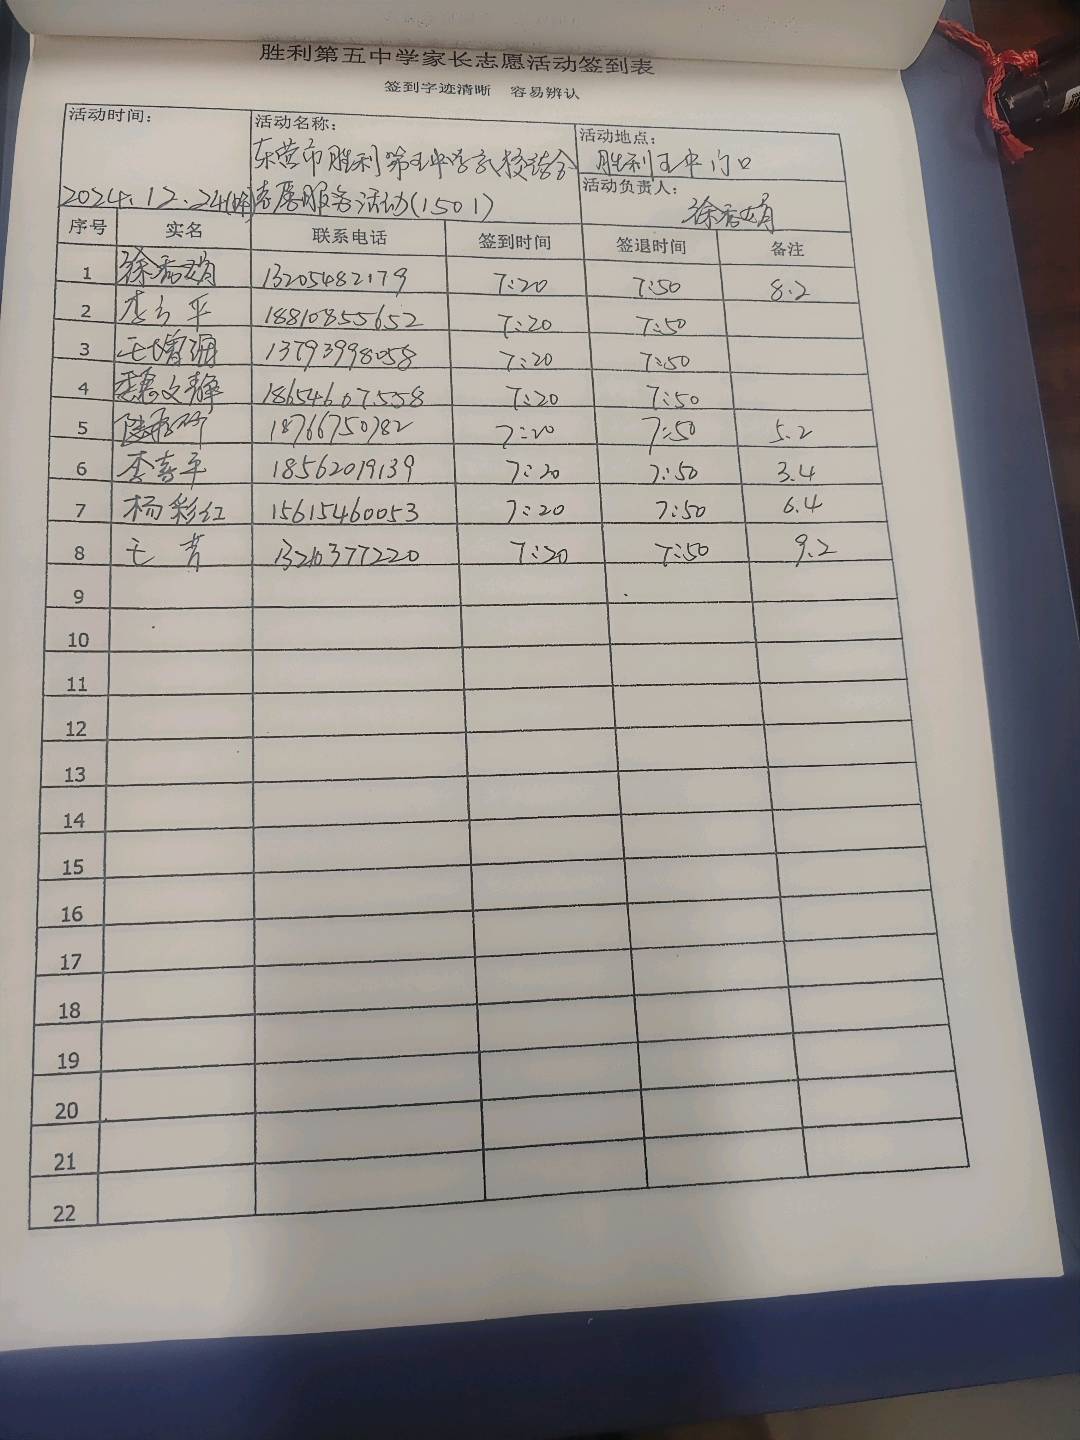 胜利第五中学家长志愿活动签到表
签到字迹清晰 容易辨认
活动时间: 活动名称: 活动地点:
东营市胜利第五中学家校结合 胜利五中门口
2024.12.24 志愿服务活动(1501) 活动负责人:
徐
序号 实名 联系电话 签到时间 签退时间 备注
1 徐 13205482179 7:20 7:50 8.2
2 李 平 18810855652 7:20 7:50
3 王增强 13793998058 7:20 7:50
4 魏文静 18654607558 7:20 7:50
5 18766750782 7:20 7:50 5.2
6 李春平 18562019139 7:20 7:50 3.4
7 杨彩红 15615460053 7:20 7:50 6.4
8 王 13210377220 7:20 7:50 9.2
9
10
11
12
13
14
15
16
17
18
19
20
21
22